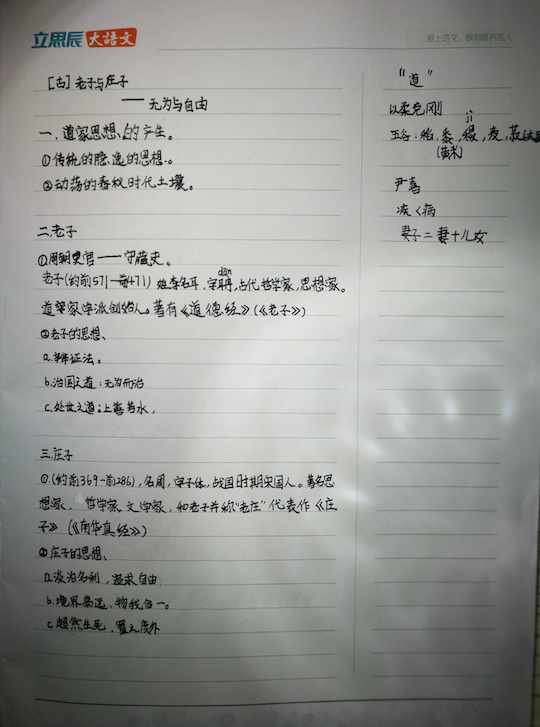 立思辰大語文
爱上语文，做有修养的人
[古] 老子与庄子
——无为与自由
一. 道家思想的产生。
①传统的隐逸的思想。
②动荡的春秋时代土壤。
二.老子
①周朝史官——守藏史。
老子(约前571—前471) 姓李名耳，字聃，古代哲学家，思想家。
dān
道家学派创始人。著有《道德经》(《老子》)
②老子的思想、
a.辩证法。
b.治国之道：无为而治
c.处世之道：上善若水，
三.庄子
①.(约前369-前286)，名周，字子休，战国时期宋国人。著名思
想家、哲学家 文学家，和老子并称"老庄"代表作《庄
子》(《南华真经》)
②庄子的思想、
a.淡泊名利，追求自由
b.境界高远，物我合一。
c.超然生死，置之度外
"道"
以柔克刚
jì
五谷：稻，黍，稷，麦，菽
(黄米)
尹喜
疾<病
妻子=妻+儿女